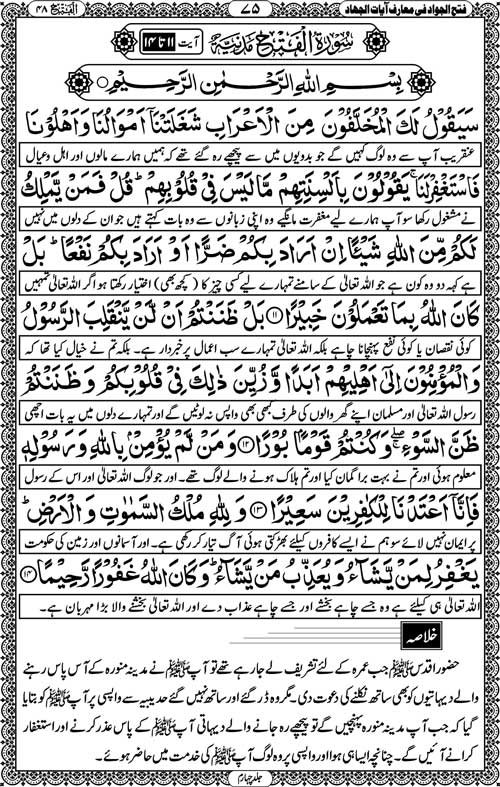 فتح الجواد فی معارف آیات الجهاد ۷۵ الفتح ۴۸
سورة الفتح مدنیة آیت ۱۱ تا ۱۴
بسم الله الرحمن الرحيم
سَيَقُولُ لَكَ الْمُخَلَّفُونَ مِنَ الْاَعْرَابِ شَغَلَتْنَآ اَمْوَالُنَا وَاَهْلُوْنَا
عنقریب آپ سے وہ لوگ کہیں گے جو بدویوں میں سے پیچھے رہ گئے تھے کہ ہمیں ہمارے مالوں اور اہل وعیال
فَاسْتَغْفِرْ لَنَا ۚ يَقُوْلُوْنَ بِاَلْسِنَتِهِمْ مَّا لَيْسَ فِيْ قُلُوْبِهِمْ ؕ قُلْ فَمَنْ يَّمْلِكُ
نے مشغول رکھا سو آپ ہمارے لیے مغفرت مانگیے وہ اپنی زبانوں سے وہ بات کہتے ہیں جو ان کے دلوں میں نہیں
لَكُمْ مِّنَ اللهِ شَيْئًا اِنْ اَرَادَ بِكُمْ ضَرًّا اَوْ اَرَادَ بِكُمْ نَفْعًا ؕ بَلْ
ہے کہہ دو وہ کون ہے جو اللہ تعالیٰ کے سامنے تمہارے لیے کسی چیز کا (کچھ بھی) اختیار رکھتا ہو اگر اللہ تعالیٰ تمہیں
كَانَ اللهُ بِمَا تَعْمَلُوْنَ خَبِيْرًا ۱۱ بَلْ ظَنَنْتُمْ اَنْ لَّنْ يَّنْقَلِبَ الرَّسُوْلُ
کوئی نقصان یا کوئی نفع پہنچانا چاہے بلکہ اللہ تعالیٰ تمہارے سب اعمال پر خبردار ہے۔ بلکہ تم نے خیال کیا تھا کہ
وَالْمُؤْمِنُوْنَ اِلٰٓى اَهْلِيْهِمْ اَبَدًا وَّزُيِّنَ ذٰلِكَ فِيْ قُلُوْبِكُمْ وَظَنَنْتُمْ
رسول اللہ تعالیٰ اور مسلمان اپنے گھر والوں کی طرف کبھی بھی واپس نہ لوٹیں گے اور تمہارے دلوں میں یہ بات اچھی
ظَنَّ السَّوْءِ ۖ وَكُنْتُمْ قَوْمًۢا بُوْرًا ۱۲ وَمَنْ لَّمْ يُؤْمِنْۢ بِاللهِ وَرَسُوْلِهٖ
معلوم ہوئی اور تم نے بہت برا گمان کیا اور تم ہلاک ہونے والے لوگ تھے۔ اور جو لوگ اللہ تعالیٰ اور اس کے رسول
فَاِنَّآ اَعْتَدْنَا لِلْكٰفِرِيْنَ سَعِيْرًا ۱۳ وَلِلّٰهِ مُلْكُ السَّمٰوٰتِ وَالْاَرْضِ ؕ
پر ایمان نہیں لائے سو ہم نے ایسے کافروں کیلئے بھڑکتی ہوئی آگ تیار کر رکھی ہے۔ اور آسمانوں اور زمین کی حکومت
يَغْفِرُ لِمَنْ يَّشَآءُ وَيُعَذِّبُ مَنْ يَّشَآءُ ؕ وَكَانَ اللهُ غَفُوْرًا رَّحِيْمًا ۱۴
اللہ تعالیٰ ہی کیلئے ہے وہ جسے چاہے بخشے اور جسے چاہے عذاب دے اور اللہ تعالیٰ بخشنے والا بڑا مہربان ہے۔
خلاصہ
حضور اقدس ﷺ جب عمرہ کے لئے تشریف لے جا رہے تھے تو آپ ﷺ نے مدینہ منورہ کے آس پاس رہنے
والے دیہاتیوں کو بھی ساتھ نکلنے کی دعوت دی۔ مگر وہ ڈر گئے اور ساتھ نہیں گئے حدیبیہ سے واپسی پر آپ ﷺ کو بتایا
گیا کہ جب آپ مدینہ منورہ پہنچیں گے تو پیچھے رہ جانے والے دیہاتی آپ ﷺ کے پاس عذر کرنے اور استغفار
کرانے آئیں گے۔ چنانچہ ایسا ہی ہوا اور واپسی پر وہ لوگ آپ ﷺ کی خدمت میں حاضر ہوئے۔
جلد چہارم